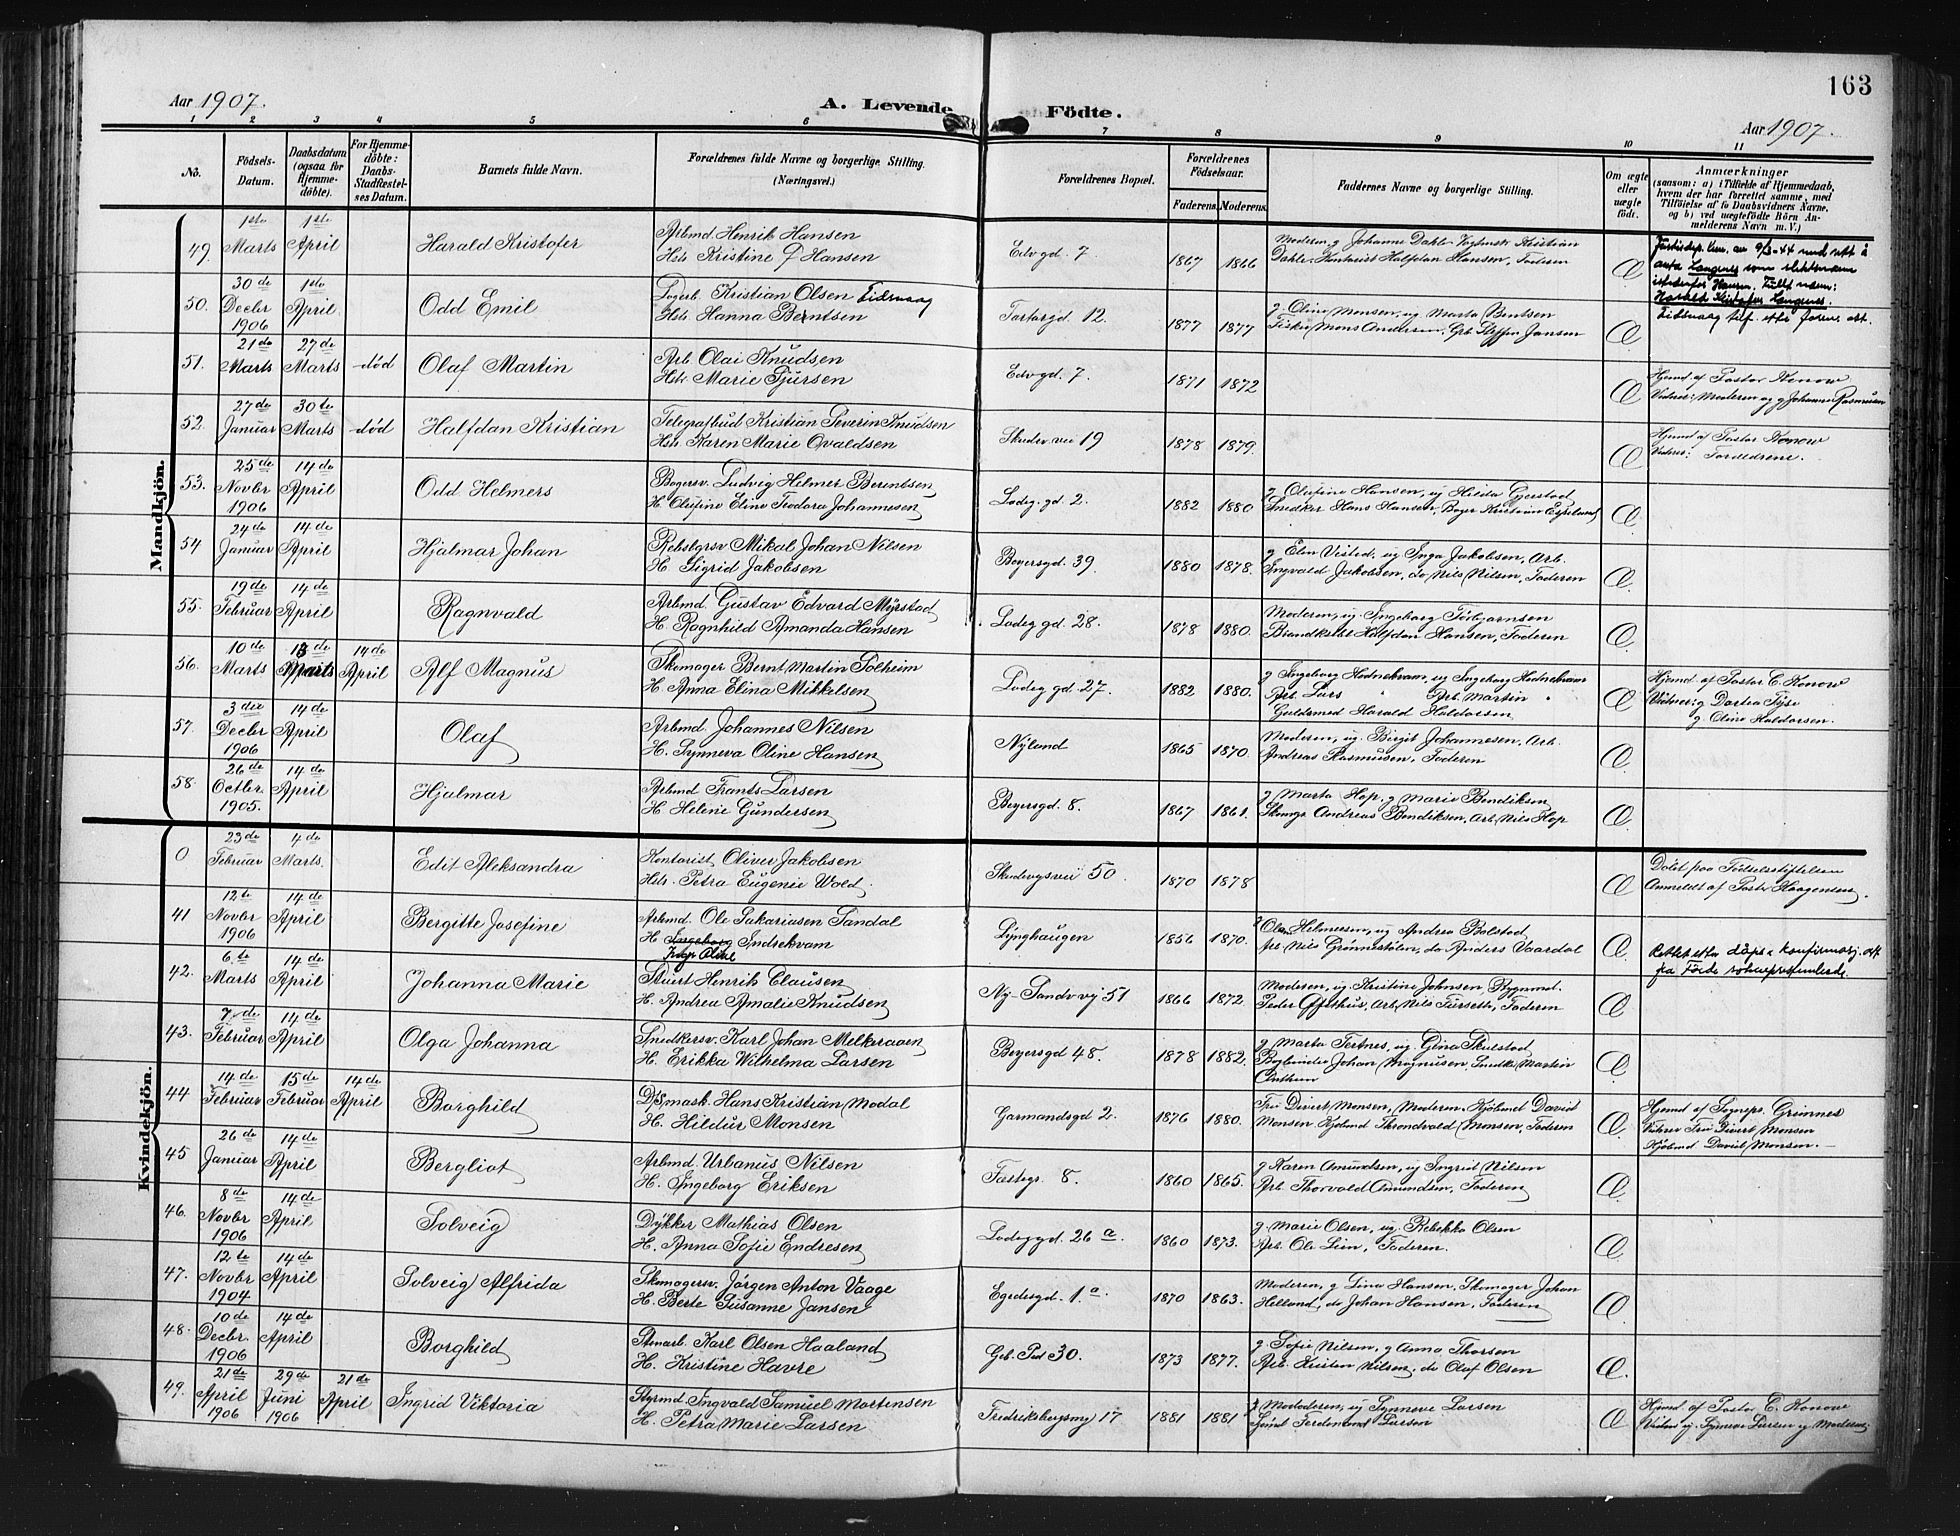 163
Aar 1907.
A. Levende Födte.
Aar 1907.
1 2 3 4 5 6 7 8 9 10 11
No.
Födsels-Datum.
Daabsdatum (ogsaa for Hjemmedöbte).
For Hjemmedöbte: Daabs-Stadfæstelses Datum.
Barnets fulde Navn.
Forældrenes fulde Navne og borgerlige Stilling. (Næringsvei.)
Forældrenes Bopæl.
Forældrenes Födselsaar.
Faderens. Moderens.
Faddernes Navne og borgerlige Stilling.
Om ægte eller uægte födt.
Anmærkninger
(saasom: a) i Tilfælde af Hjemmedaab, hvem der har forrettet samme, med Tilföielse af to Daabsvidners Navne, og b) ved uægtefödte Börn Anmelderens Navn m. V.)
Mandkjön.
49. 1ste Marts 1ste April Harald Kristofer Arbmd. Henrik Hansen Hstr. Kristine Hansen Edv gd. 7 1867 1866 Moderen, g Johanne Dahle Kristian Dahle. Halfdan Hansen, Faderen Æ Justisdep. 9/3-44 med rett å anta Langenes som slektsnavn istedenfor Hansen. Fullt navn: Harald Kristofer Langenes.
50. 30de Decbr 1906 1ste April Odd Emil Kristian Olsen Eidsvaag Hstr. Hanna Berntsen Tartargd 12. 1877 1877 g Oline Monsen, ug Marta Bentsen Fisker Mons Andersen, Grb. Steffen Jansen Æ Eidsvaag tilf. etter foren. att.
51. 21de Marts 27de Marts død Olaf Martin Arb. Olai Knudsen Hstr Marie Tjursen Edv gd. 7. 1871 1872 Æ Hjemd. af Pastor Konow Vidner: Moderen og g Johanne Rasmussen
52. 27de Januar 30te Marts død Halfdan Kristian Telegrafbud Kristian Severin Knudsen Hstr. Karen Marie Ovaldsen Skudev vei 19 1878 1879. Æ Hjemd. af Pastor Konow Vidner: Forældrene.
53. 25de Novbr 1906 14de April Odd Helmers Bagersv. Ludvig Helmer Berentsen H. Olufine Eline Teodora Johannesen Ladeg. gd. 2. 1882 1880 g Olufine Hansen, ug Hilda Gjerstad Snedker Hans Hansen, Bager Kristian Espeland Æ
54 24de Januar 14de April Hjalmar Johan Rebslgrsv Mikal Johan Nilsen H. Sigrid Jakobsen Beyersgd. 39. 1880 1878. g Elen Visted, ug Inga Jakobsen, Arb. Ingvald Jakobsen, do Nils Nilsen, Faderen Æ.
55. 19de Februar 14de April Ragnvald Arbmd. Gustav Edvard Myrstad H. Ragnhild Amanda Hansen Ladeg gd. 28. 1878 1880. Moderen, ug Ingeborg Torbjørnsen Halfdan Hansen, Faderen Æ
56. 10de Marts 13de Marts 14de April Alf Magnus Skomager Bernt Martin Solheim H. Anna Elina Mikkelsen Ladeg gd. 27. 1882 1880. g Ingeborg Hodnekvam, ug Ingeborg Hodnekvam Arb. Lars " Arb. Martin " Guldsmed Harald Haldorsen Æ Hjemd. af Pastor E. Konow Vidner: g Dortea g Oline Haldorsen.
57. 3die Decbr 1906 14de April Olaf Arbmd. Johannes Nilsen H. Synneva Oline Hansen Nyland 1865 1870. Moderen, ug. Birgit Johannesen, Arb. Andreas Rasmusen, Faderen Æ
58. 26de Octbr. 1905. 14de April Hjalmar Arbmd Frants Larsen H. Helene Gundersen Beyersgd. 8. 1867 1861. g Marta Hop, g Marie Bendiksen Skomgr Andreas Bendiksen, Arb. Nils Hop Æ.
Kvindekjön.
0 23de Februar 4de Marts. Edit Aleksandra Kontorist Oliver Jakobsen Hstr. Petra Eugenie Wold. Skudevigsvei 50. 1870 1878 Æ Døbt paa Fødselsstiftelsen Anmeldt af Pastor Haagensen.
41 12te Novbr 1906 14de April Bergitte Josefine Arbmd. Ole Sakariasen Sandal H. Ingeborg Indrekvam Inga Aline Lynghaugen 1856 1870. g Olea Helmersen, ug Andrea Bolstad Arb. Nils Grønnestølen, do Anders Vaardal Æ. Rettet etter dåps- & konfirmasj. att. fra Förde sokneprestembede.
42. 6te Marts 14de April Johanna Marie Stuert Henrik Clausen H. Andrea Amalie Knudsen Ny-Sandv vj 51 1866 1872. Moderen, ug Kristine Johnsen, Bygnmd. Peder Opsthus, Arb. Nils Furseth, Faderen Æ
43. 7de Februar 14de April Olga Johanna Snedkersv. Karl Johan Melkeraaen H. Erikka Wilhelma Larsen Beyersgd 48. 1878 1882. g Marta Tertnes, ug Gina Skulstad Bogbinder Johan Magnusen, Snedker Martin Anthun Æ.
44 14de Februar 15de Februar 14de April Borghild Dpsmask. Hans Kristian Modal H. Hildur Monsen Garmandsgd 2. 1876 1880. Fru Divert Monsen, Moderen, Kjøbmd David Monsen Kjøbmd Throndvald Monsen, Faderen Æ. Hjemd af Sogneps. Grimnes Vidner Fru Divert Monsen Kjøbmd David Monsen.
45 26de Januar 14de April Bergliot Arbmd. Urbanus Nilsen H. Ingeborg Eriksen Fastegs. 8. 1860 1865. g Karen Amundsen, ug Ingrid Nilsen Arb. Thorvald Amundsen, Faderen Æ.
46. 8de Novbr 1906 14de April Solveig Dykker Mathias Olsen H. Anna Sofie Endresen Ladeg gd. 26a. 1860 1873. g Marie Olsen, ug Rebekka Olsen Arb. Ole Lien, Faderen. Æ
47. 12te Novbr 1904 14de April Solveig Alfrida Skomagersv. Jörgen Anton Vaage H. Berte Susanne Jansen Egedesgd. 1a. 1870 1863. Moderen, g Lina Hansen, Skomager Johan Helland, do Johan Hansen, Faderen Æ
48. 10de Decbr. 1906 14de April Borghild Stenarb. Karl Olsen Haaland H. Kristine Havre Geb. Ped 30. 1873 1877. g Sofie Nilsen, g Anna Thorsen Arb. Kristen Nilsen, do Olaf Olsen Æ.
49. 21de April 1906 29de Juni 1906 21de April Ingrid Viktoria Styrmd. Ingvald Samuel Mortensen H. Petra Marie Larsen Fredriksbergsmy 17 1881 1881 Moderen, ug Synneve Larsen Ferdinand Larsen Æ Hjemd. af Pastor E. Konow Vidner ug. Synneve Larsen og Moderen